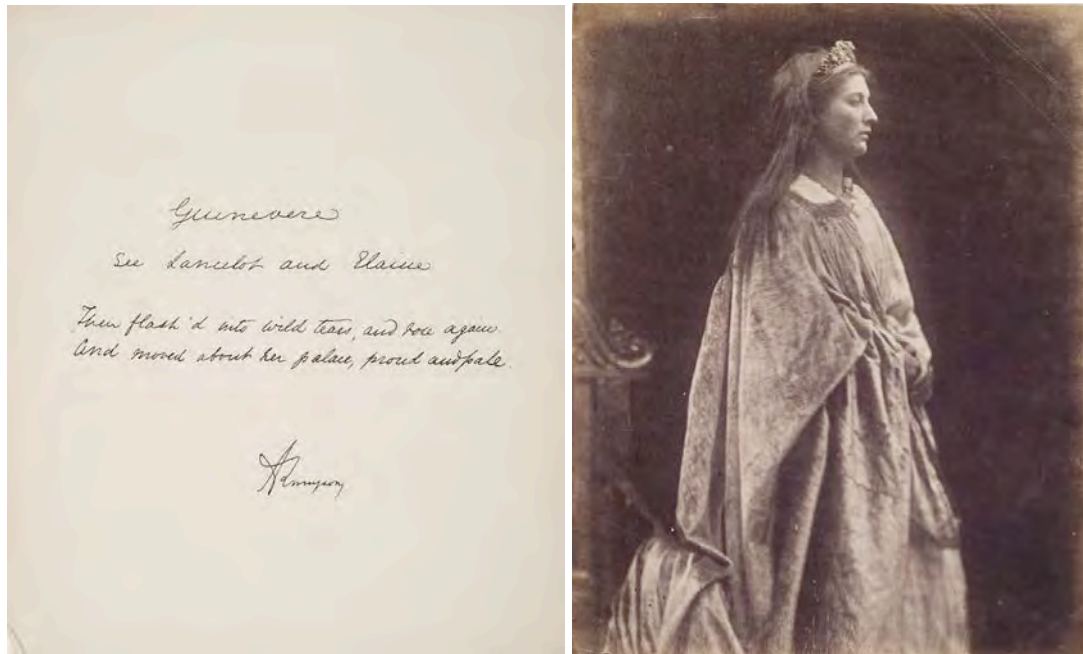 Guinevere
See Lancelot and Elaine
Then flash'd into wild tears, and rose again
And moved about her palace, proud and pale.
ATennyson